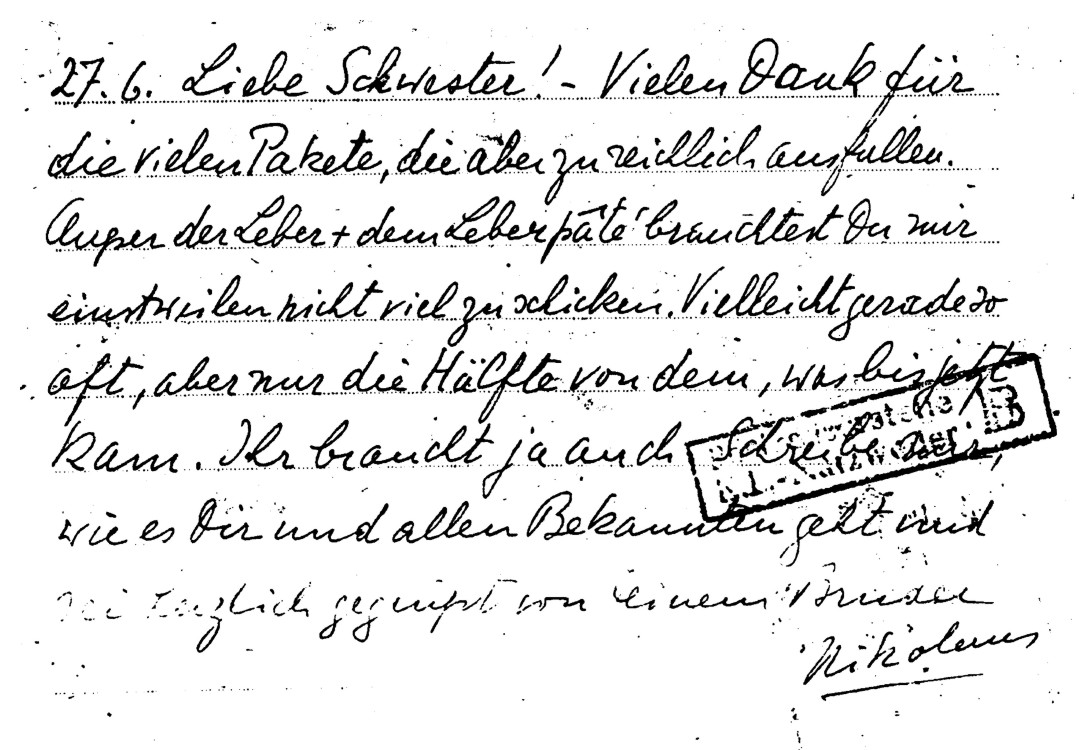 27. 6. Liebe Schwester! - Vielen Dank für
die vielen Pakete, die aber zu reichlich ausfallen.
Außer der Leber + dem Leberpâté brauchtest Du mir
einstweilen nicht viel zu schicken. Vielleicht gerade so
oft, aber nur die Hälfte von dem, was bis jetzt
kam. Ihr braucht ja auch. Schreibe
wie es Dir und allen Bekannten geht und
sei herzlich gegrüßt von Deinem Bruder
Nikolaus